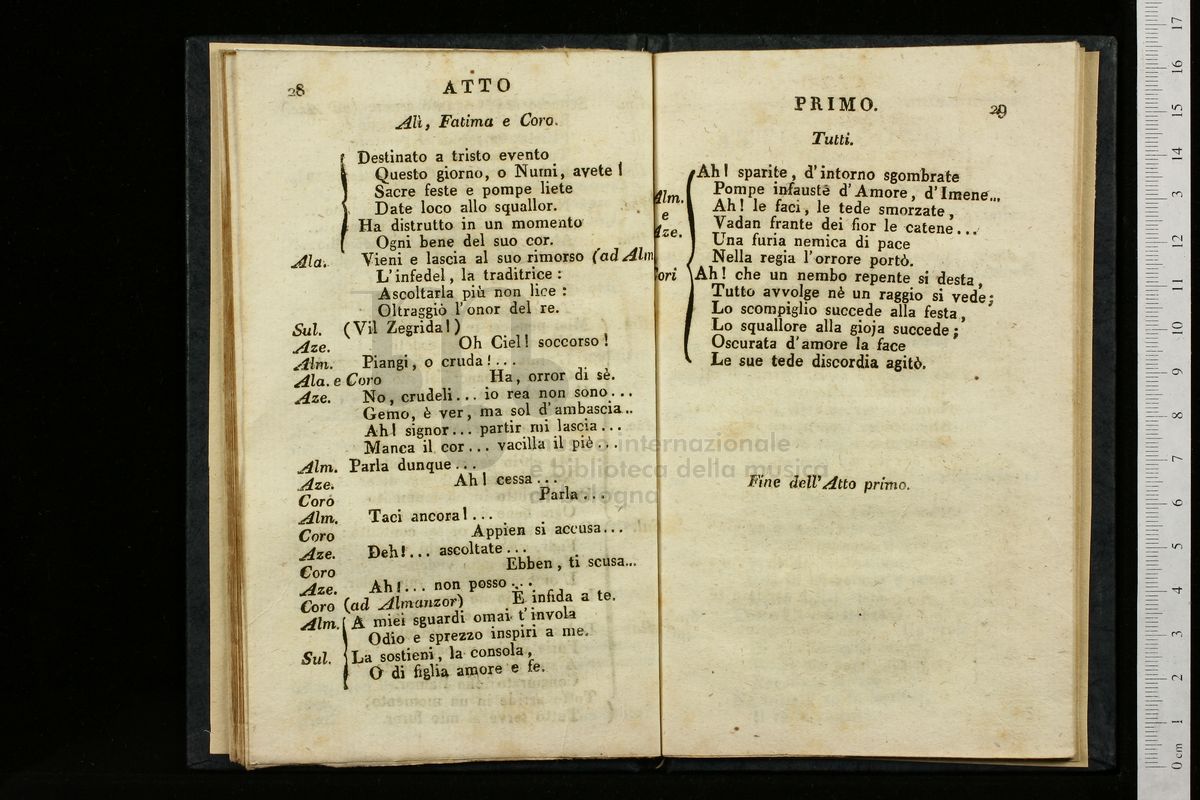 28
ATTO
Alì, Fatima e Coro.
Destinato a tristo evento
Questo giorno, o Numi, avete!
Sacre feste e pompe liete
Date loco allo squallor.
Ha distrutto in un momento
Ogni bene del suo cor.
Ala. Vieni e lascia al suo rimorso (ad Alm
L'infedel, la traditrice:
Ascoltarla più non lice:
Oltraggiò l'onor del re.
Sul. (Vil Zegrida!)
Aze. Oh Ciel! soccorso!
Alm. Piangi, o cruda!...
Ala. e Coro Ha, orror di sè.
Aze. No, crudeli... io rea non sono...
Gemo, è ver, ma sol d'ambascia..
Ah! signor... partir mi lascia...
Manca il cor... vacilla il piè...
Alm. Parla dunque...
Aze. Ah! cessa...
Coro Parla...
Alm. Taci ancora!...
Coro Appien si accusa...
Aze. Deh!... ascoltate...
Coro Ebben, ti scusa...
Aze. Ah!... non posso...
Coro (ad Almanzor) È infida a te.
Alm. A miei sguardi omai t'invola
Odio e sprezzo inspiri a me.
Sul. La sostieni, la consola,
O di figlia amore e fe.
PRIMO.
29
Tutti.
Ah! sparite, d'intorno sgombrate
Pompe infauste d'Amore, d'Imene...
Alm. Ah! le faci, le tede smorzate,
e Vadan frante dei fior le catene...
Aze. Una furia nemica di pace
Nella regia l'orrore portò.
Cori Ah! che un nembo repente si desta,
Tutto avvolge nè un raggio si vede;
Lo scompiglio succede alla festa,
Lo squallore alla gioja succede;
Oscurata d'amore la face
Le sue tede discordia agitò.
Fine dell'Atto primo.
museo internazionale
e biblioteca della musica
di bologna
0 cm 1 2 3 4 5 6 7 8 9 10 11 12 13 14 15 16 17